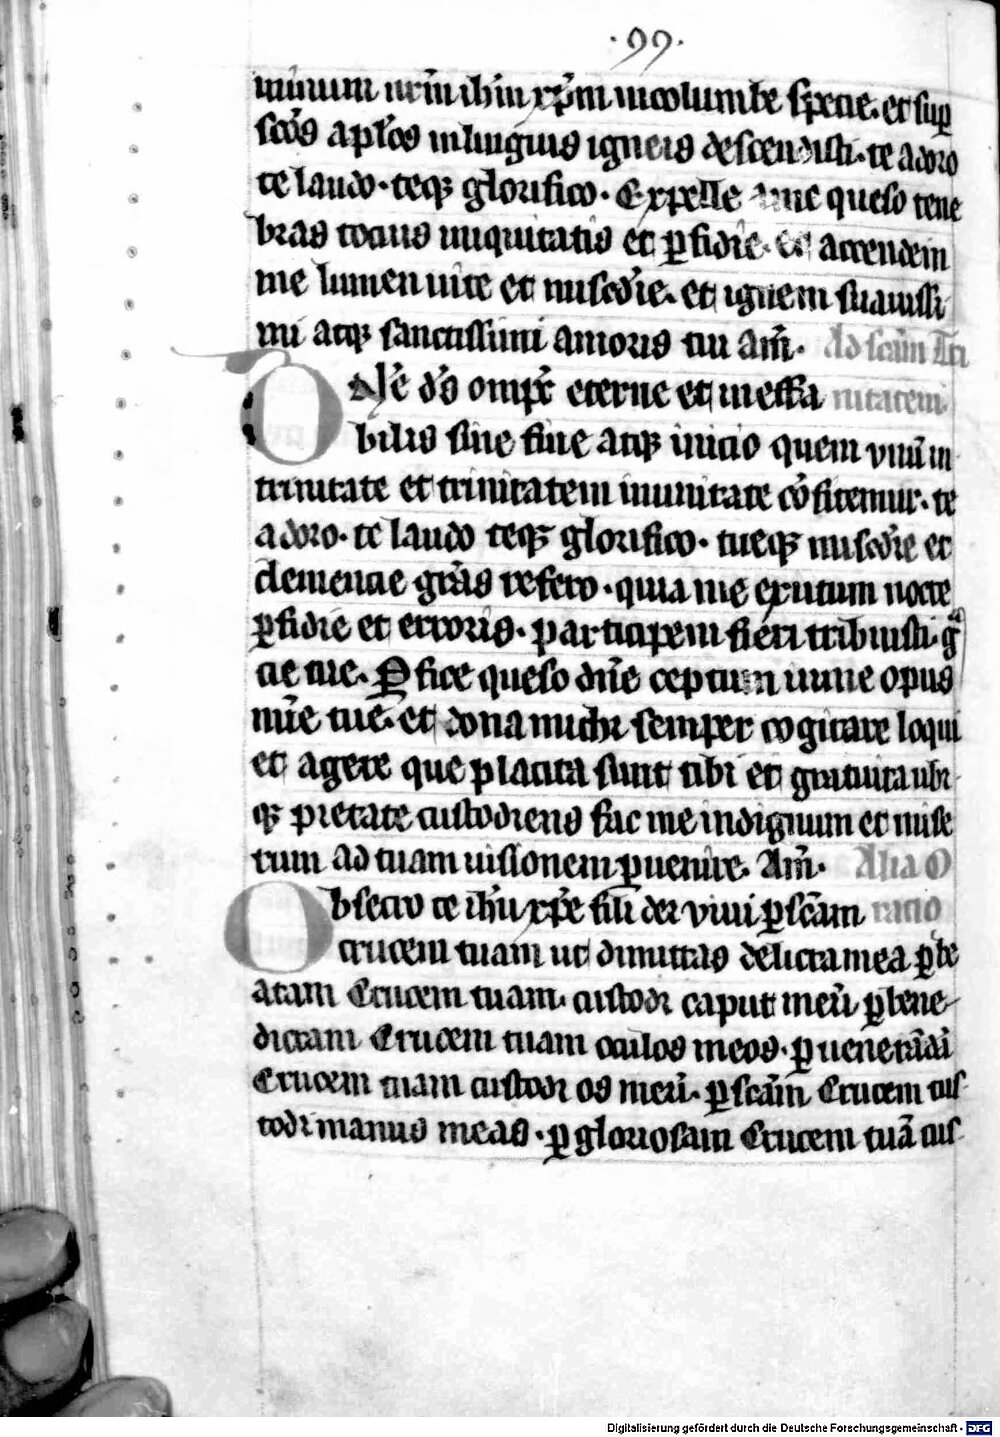 ·99·
minum nr̄m ih̄m xp̄m in columbe specie. et sup̲
scōs apl̄os in linguis igneis descendisti. te adoro
te laudo. teqꝫ glorifico. Expelle a me queso tene
bras tocius iniquitatis et ꝑfidie. et accende in
me lumen vite et misc̄die. et ignem suauissi
mi atqꝫ sanctissimi amoris tui am̄. Ad sc̄am Tri
Dn̄e ds̄ omp̄r eterne et ineffa nitatem
bilis sine fine atqꝫ inicio quem vnū in
trinitate et trinitatem in unitate cōfitemur. te
adoro. te laudo teqꝫ glorifico. tueqꝫ misc̄die et
clemencie grās refero. quia me exutum nocte
ꝑfidie et erroris. participem fieri tribuisti. grā
cie tue. Ꝑfice queso dn̄e ceptum in me opus
mīe tue. et dona michi semper cogitare loqui
et agere que placita sunt tibi et gratuita ubi
qꝫ pietate custodiens fac me indignum et mise
rum ad tuam uisionem ꝑuenire. Am̄. Alia O
Obsecro te ih̄u xp̄e fili dei viui ꝑ sc̄am racio
crucem tuam ut dimittas delicta mea ꝑ be
atam Crucem tuam. custodi caput meū ꝑ bene-
dictam Crucem tuam oculos meos. ꝑ uenerādā
Crucem tuam custodi os meū. ꝑ sc̄am Crucem cus-
todi manus meas. ꝑ gloriosam Crucem tuā cus-
Digitalisierung gefördert durch die Deutsche Forschungsgemeinschaft - DFG